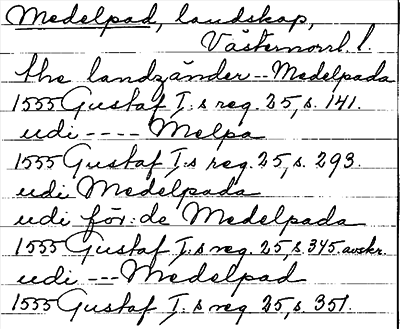 Medelpad, landskap,
Västernorrl. l.
the landzänder -- Medelpada
1555 Gustaf I:s reg. 25, s. 141.
udi ---- Melpa
1555 Gustaf I:s reg. 25, s. 293.
udi Medelpada
udi för:de Medelpada
1555 Gustaf I:s reg. 25, s. 345. avskr.
udi --- Medelpad
1555 Gustaf I:s reg 25, s. 351.